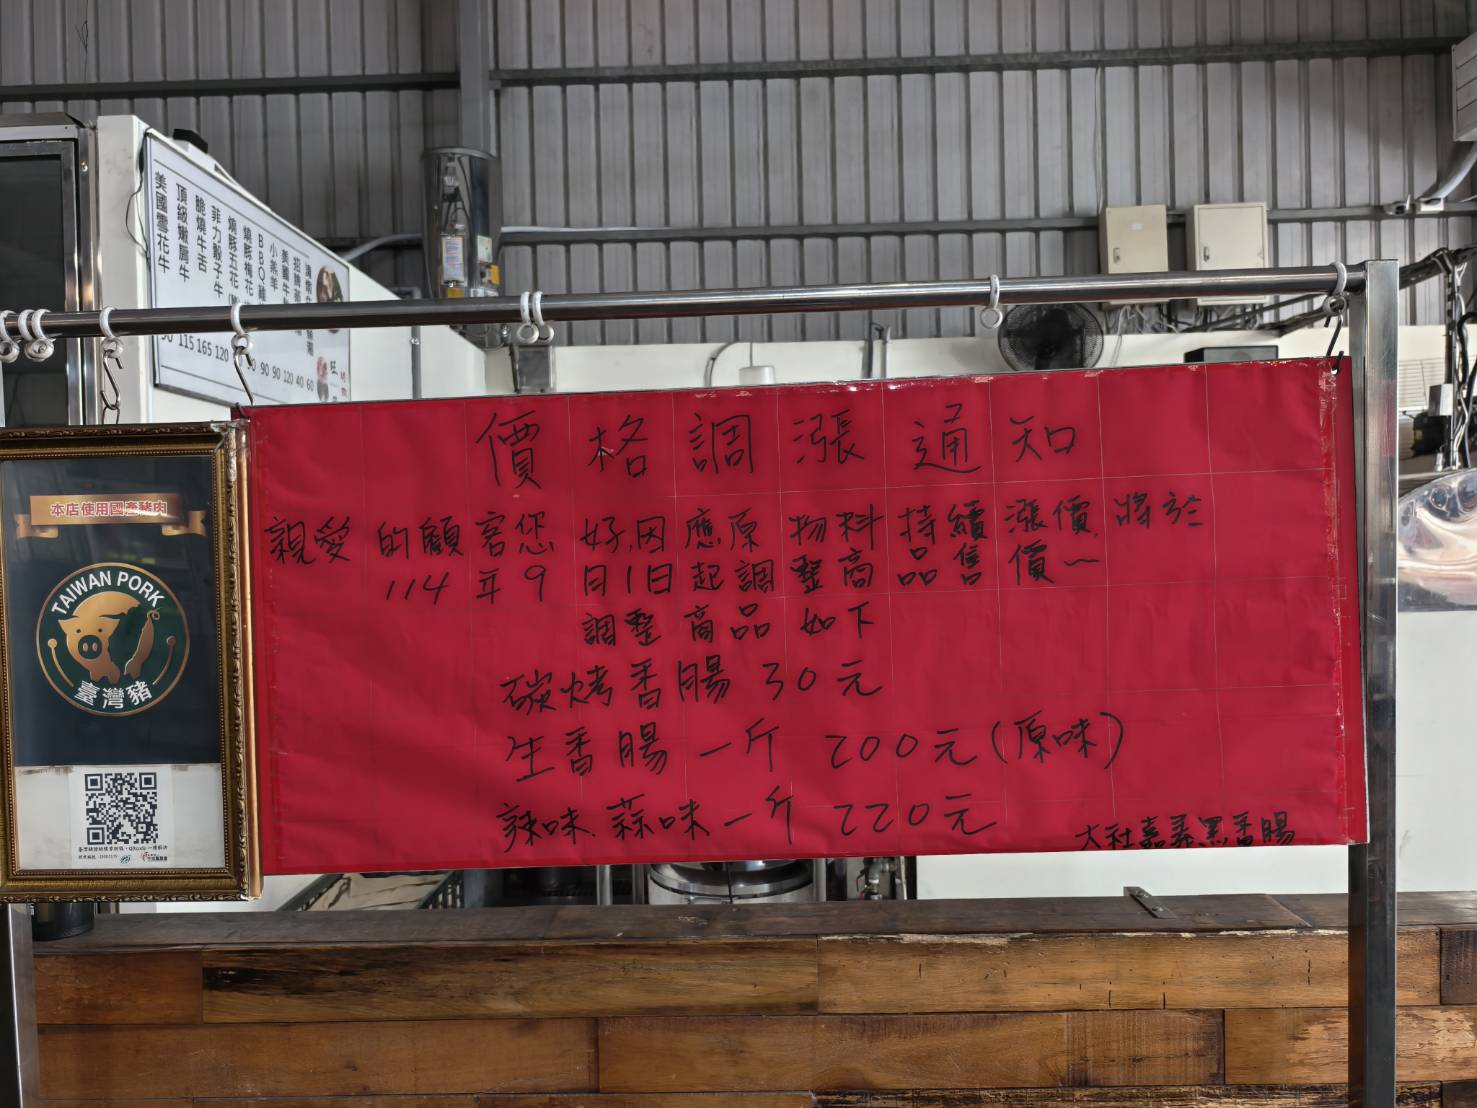 價格調漲通知
親愛的顧客您好,因應原物料持續漲價,將於
114年9月1日起調整商品售價~
調整商品如下
碳烤香腸 30元
生香腸 一斤 200元(原味)
辣味.蒜味一斤 220元
大社嘉義黑香腸
本店使用國產豬肉
TAIWAN PORK
臺灣豬
美國雪花牛
頂級嫩肩牛
脆燒牛舌
菲力骰子牛
燒豚五花
燒豚梅花
BBQ雞
小羔羊
美國牛
招牌
115 165 120
90 90 120 40 60
旺